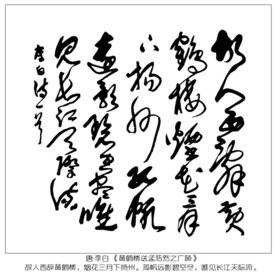 故人西辭黃
鶴樓煙花三月
下揚州孤帆
遠影碧空盡唯
見長江天際流
李白詩一首
唐·李白《黄鹤楼送孟浩然之广陵》
故人西辞黄鹤楼，烟花三月下扬州。孤帆远影碧空尽，唯见长江天际流。